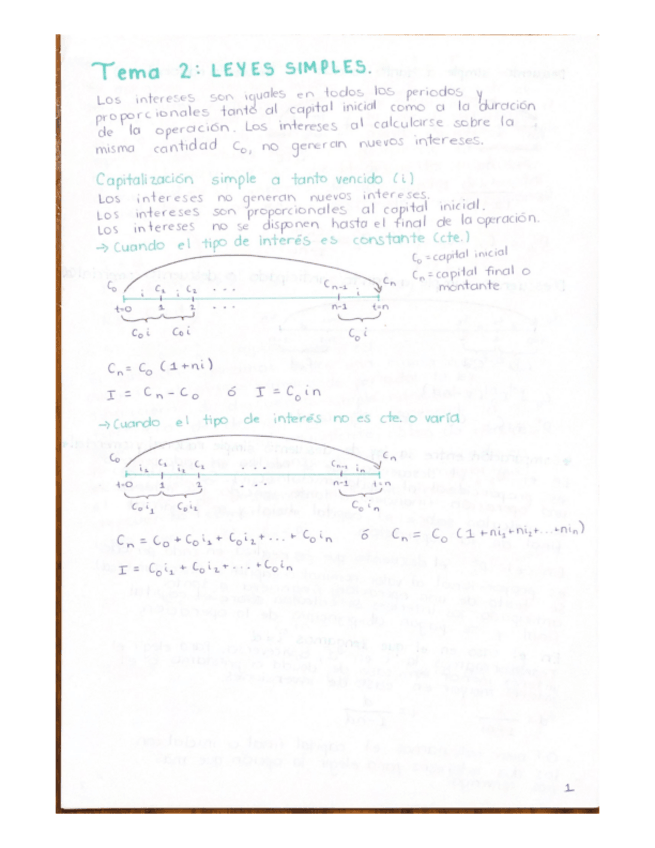 Tema 2: LEYES SIMPLES.
Los intereses son iguales en todos los periodos y
proporcionales tanto al capital inicial como a la duración
de la operación. Los intereses al calcularse sobre la
misma cantidad C₀, no generan nuevos intereses.
Capitalización simple a tanto vencido (i)
Los intereses no generan nuevos intereses.
Los intereses son proporcionales al capital inicial.
Los intereses no se disponen hasta el final de la operación.
→ Cuando el tipo de interés es constante (cte.)
C₀ = capital inicial
Cₙ = capital final o
montante
C₀ i C₁ i C₂ ... Cₙ₋₁ i Cₙ
t=0 1 2 ... n-1 t=n
C₀i C₀i C₀i
Cₙ = C₀ (1+ni)
I = Cₙ - C₀ ó I = C₀in
→ Cuando el tipo de interés no es cte. o varía
C₀ i₁ C₁ i₂ C₂ ... Cₙ₋₁ iₙ Cₙ
t=0 1 2 ... n-1 t=n
C₀i₁ C₀i₂ C₀iₙ
Cₙ = C₀ + C₀i₁ + C₀i₂ + ... + C₀iₙ ó Cₙ = C₀ (1+ni₁+ni₂+...+niₙ)
I = C₀i₁ + C₀i₂ + ... + C₀iₙ
1